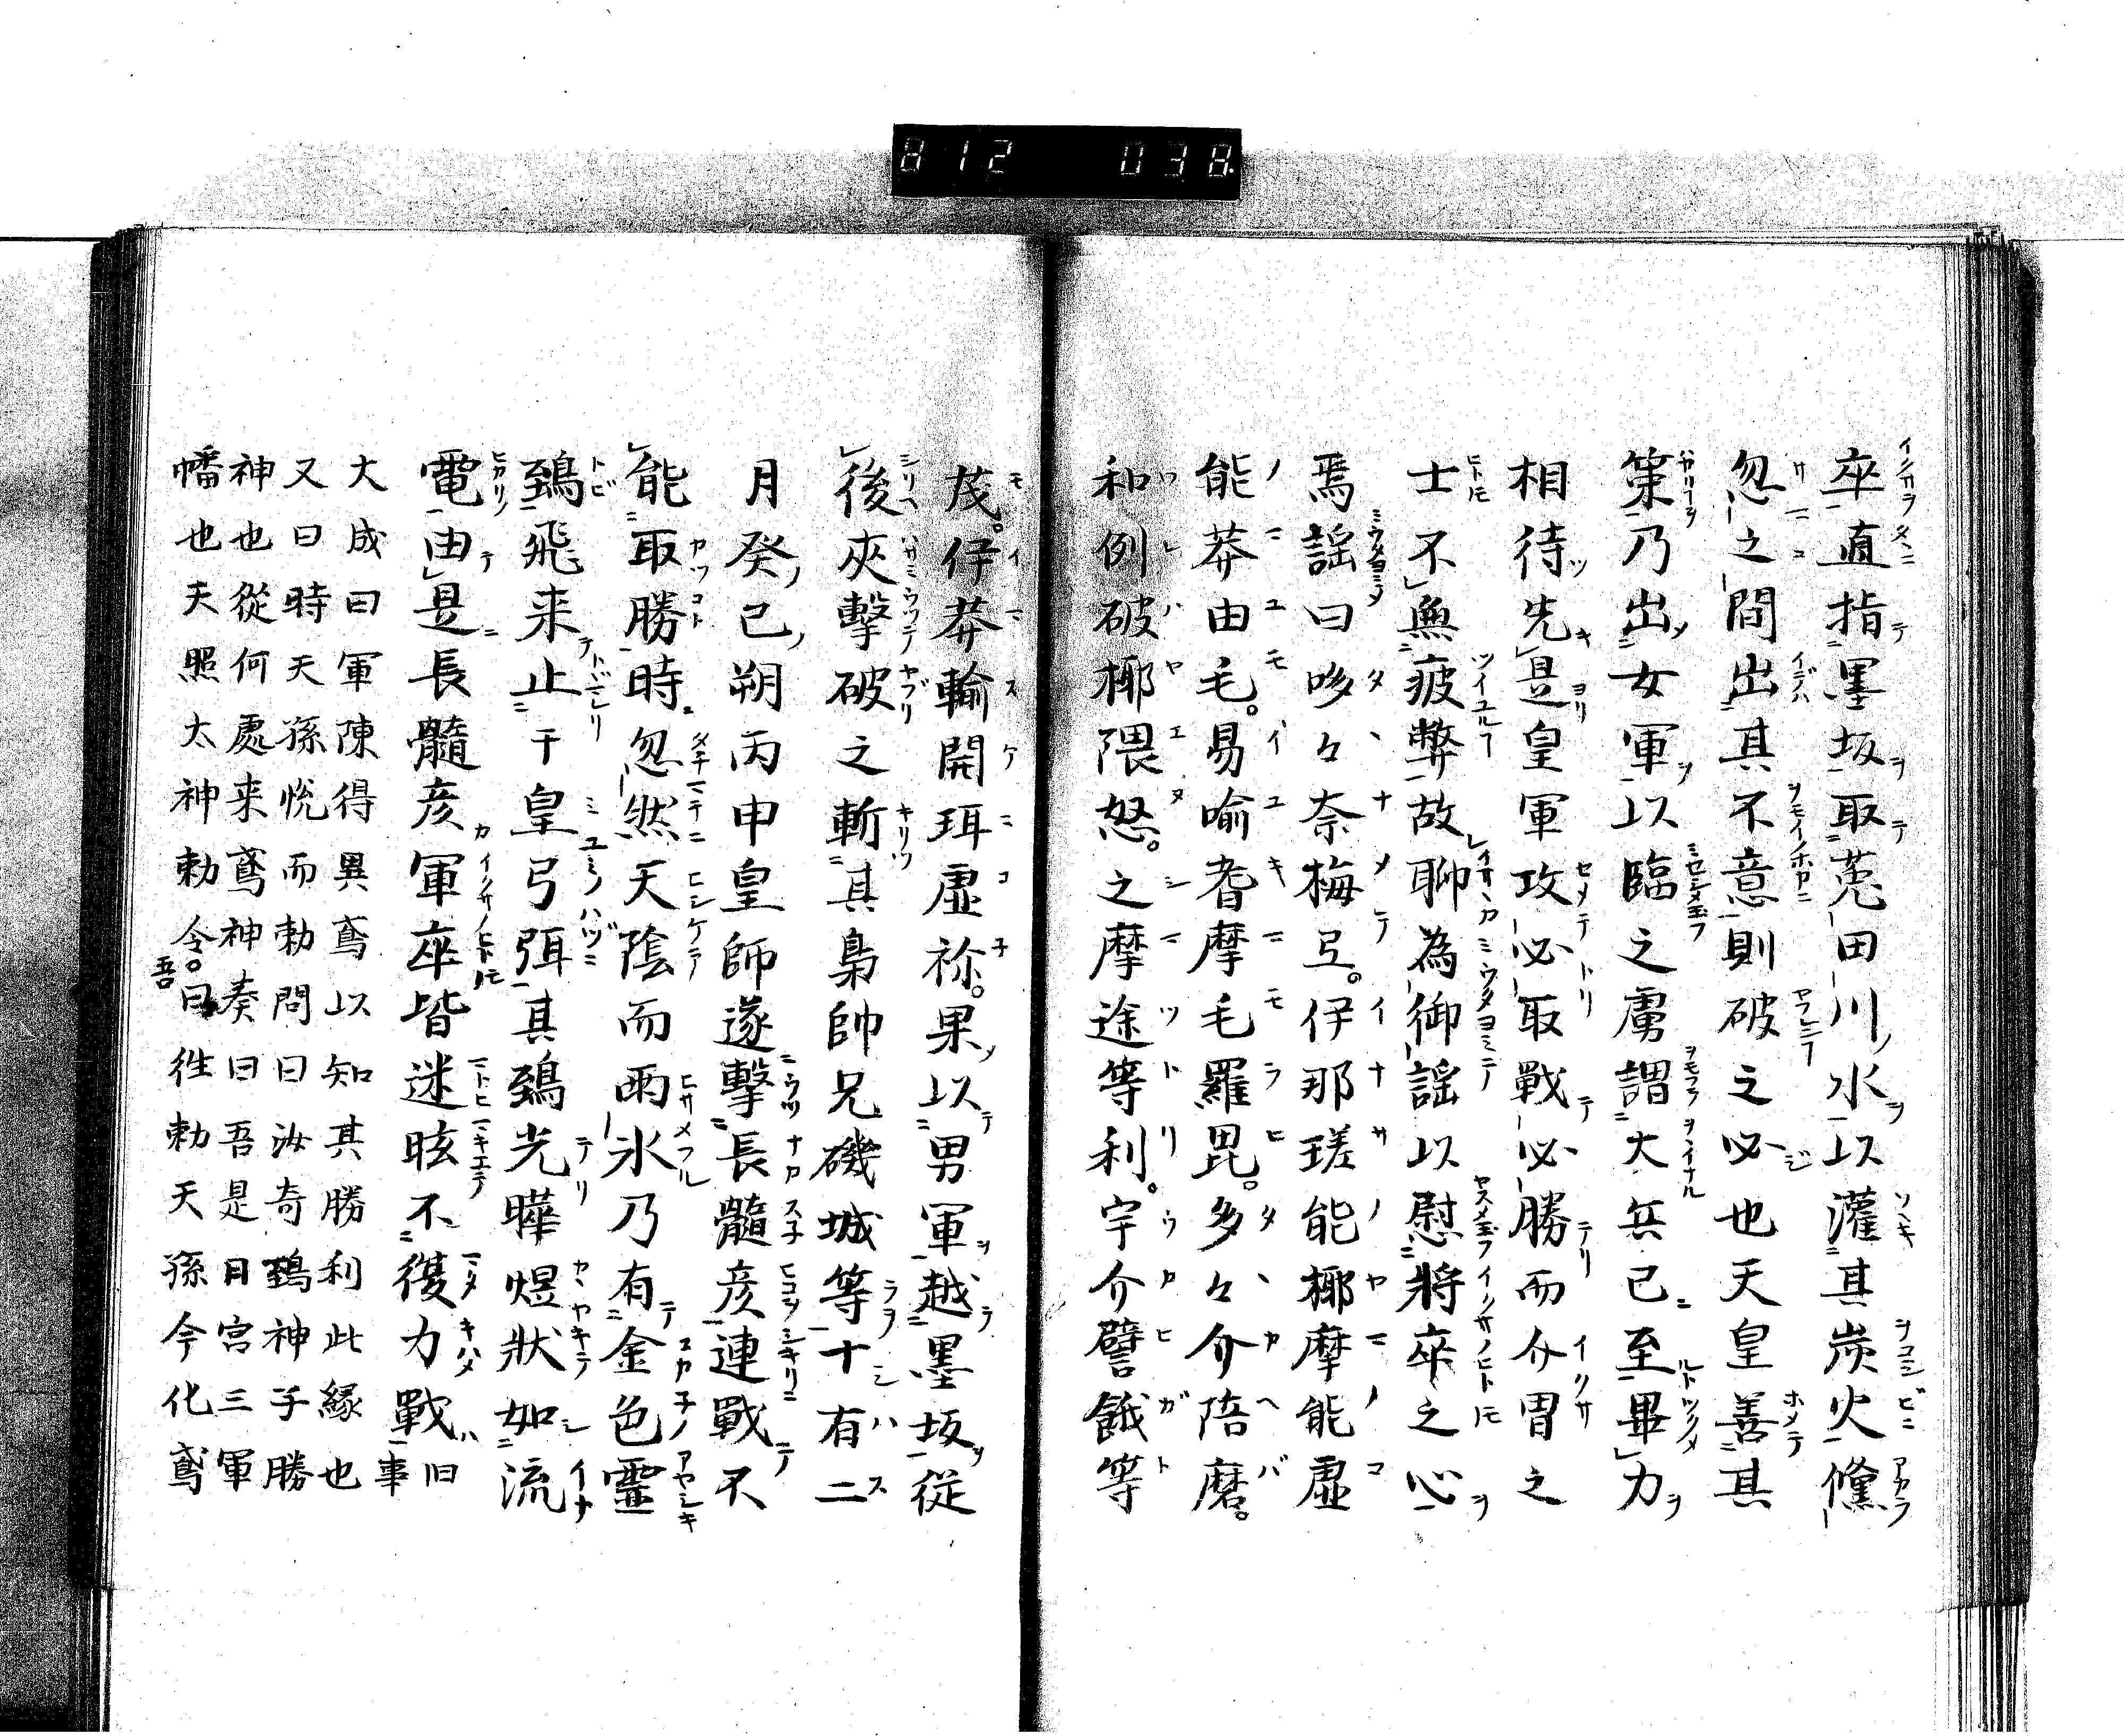 812 038
卒直指墨坂取菟田川水以灌其炭火儵
忽之間出其不意則破之必也天皇善其
策乃出女軍以臨之虜謂大兵已至畢力
相待先是皇軍攻必取戰必勝而介冑之
士不無疲弊故聊為御謡以慰將卒之心
焉謡曰哆々奈梅弖。伊那瑳能椰摩能虛
能莽由毛。易喻耆摩毛羅毘。多々介陪磨。
和例破椰隈怒。之摩途等利。宇介譬餓等
茂。伊莽輸開珥虛祢。果以男軍越墨坂從
後夾擊破之斬其梟帥兄磯城等十有二
月癸巳朔丙申皇師遂擊長髓彦連戰不
能取勝時忽然天陰而雨氷乃有金色靈
鵄飛来止于皇弓弭其鵄光曄煜狀如流
電由是長髓彦軍卒皆迷眩不復力戰旧事
大成曰軍陳得異鳶以知其勝利此縁也
又曰時天孫悦而勅問曰汝奇鵄神子勝
神也從何處来鳶神奏曰吾是日宮三軍
幡也天照太神勅令。曰吾徃勅天孫今化鳶